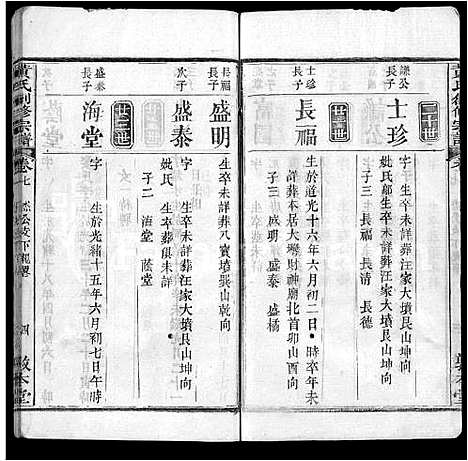 黃氏創修宗譜
謙公
長子
二十世
士珍
字 生卒未詳葬汪家大墳艮山坤向
妣氏鄒生卒未詳葬汪家大墳艮山坤向
子三 長福 長清 長德
士珍
長子
廿一世
長福
生於道光十六年六月初二日 時卒年未
詳葬本居大塆財神廟北首卯山酉向
子三 盛明 盛泰 盛橘
長福
長子
廿二世
盛明
生卒未詳葬八寶墳巽山乾向
次子
盛泰
字 生卒未詳葬汪家大墳艮山坤向
妣氏 生卒葬俱未詳
子二 海堂 蔭堂
盛泰
長子
廿三世
海堂
字 生於光緒十五年六月初七日午時
黃氏創修宗譜
卷七
四
敦本堂